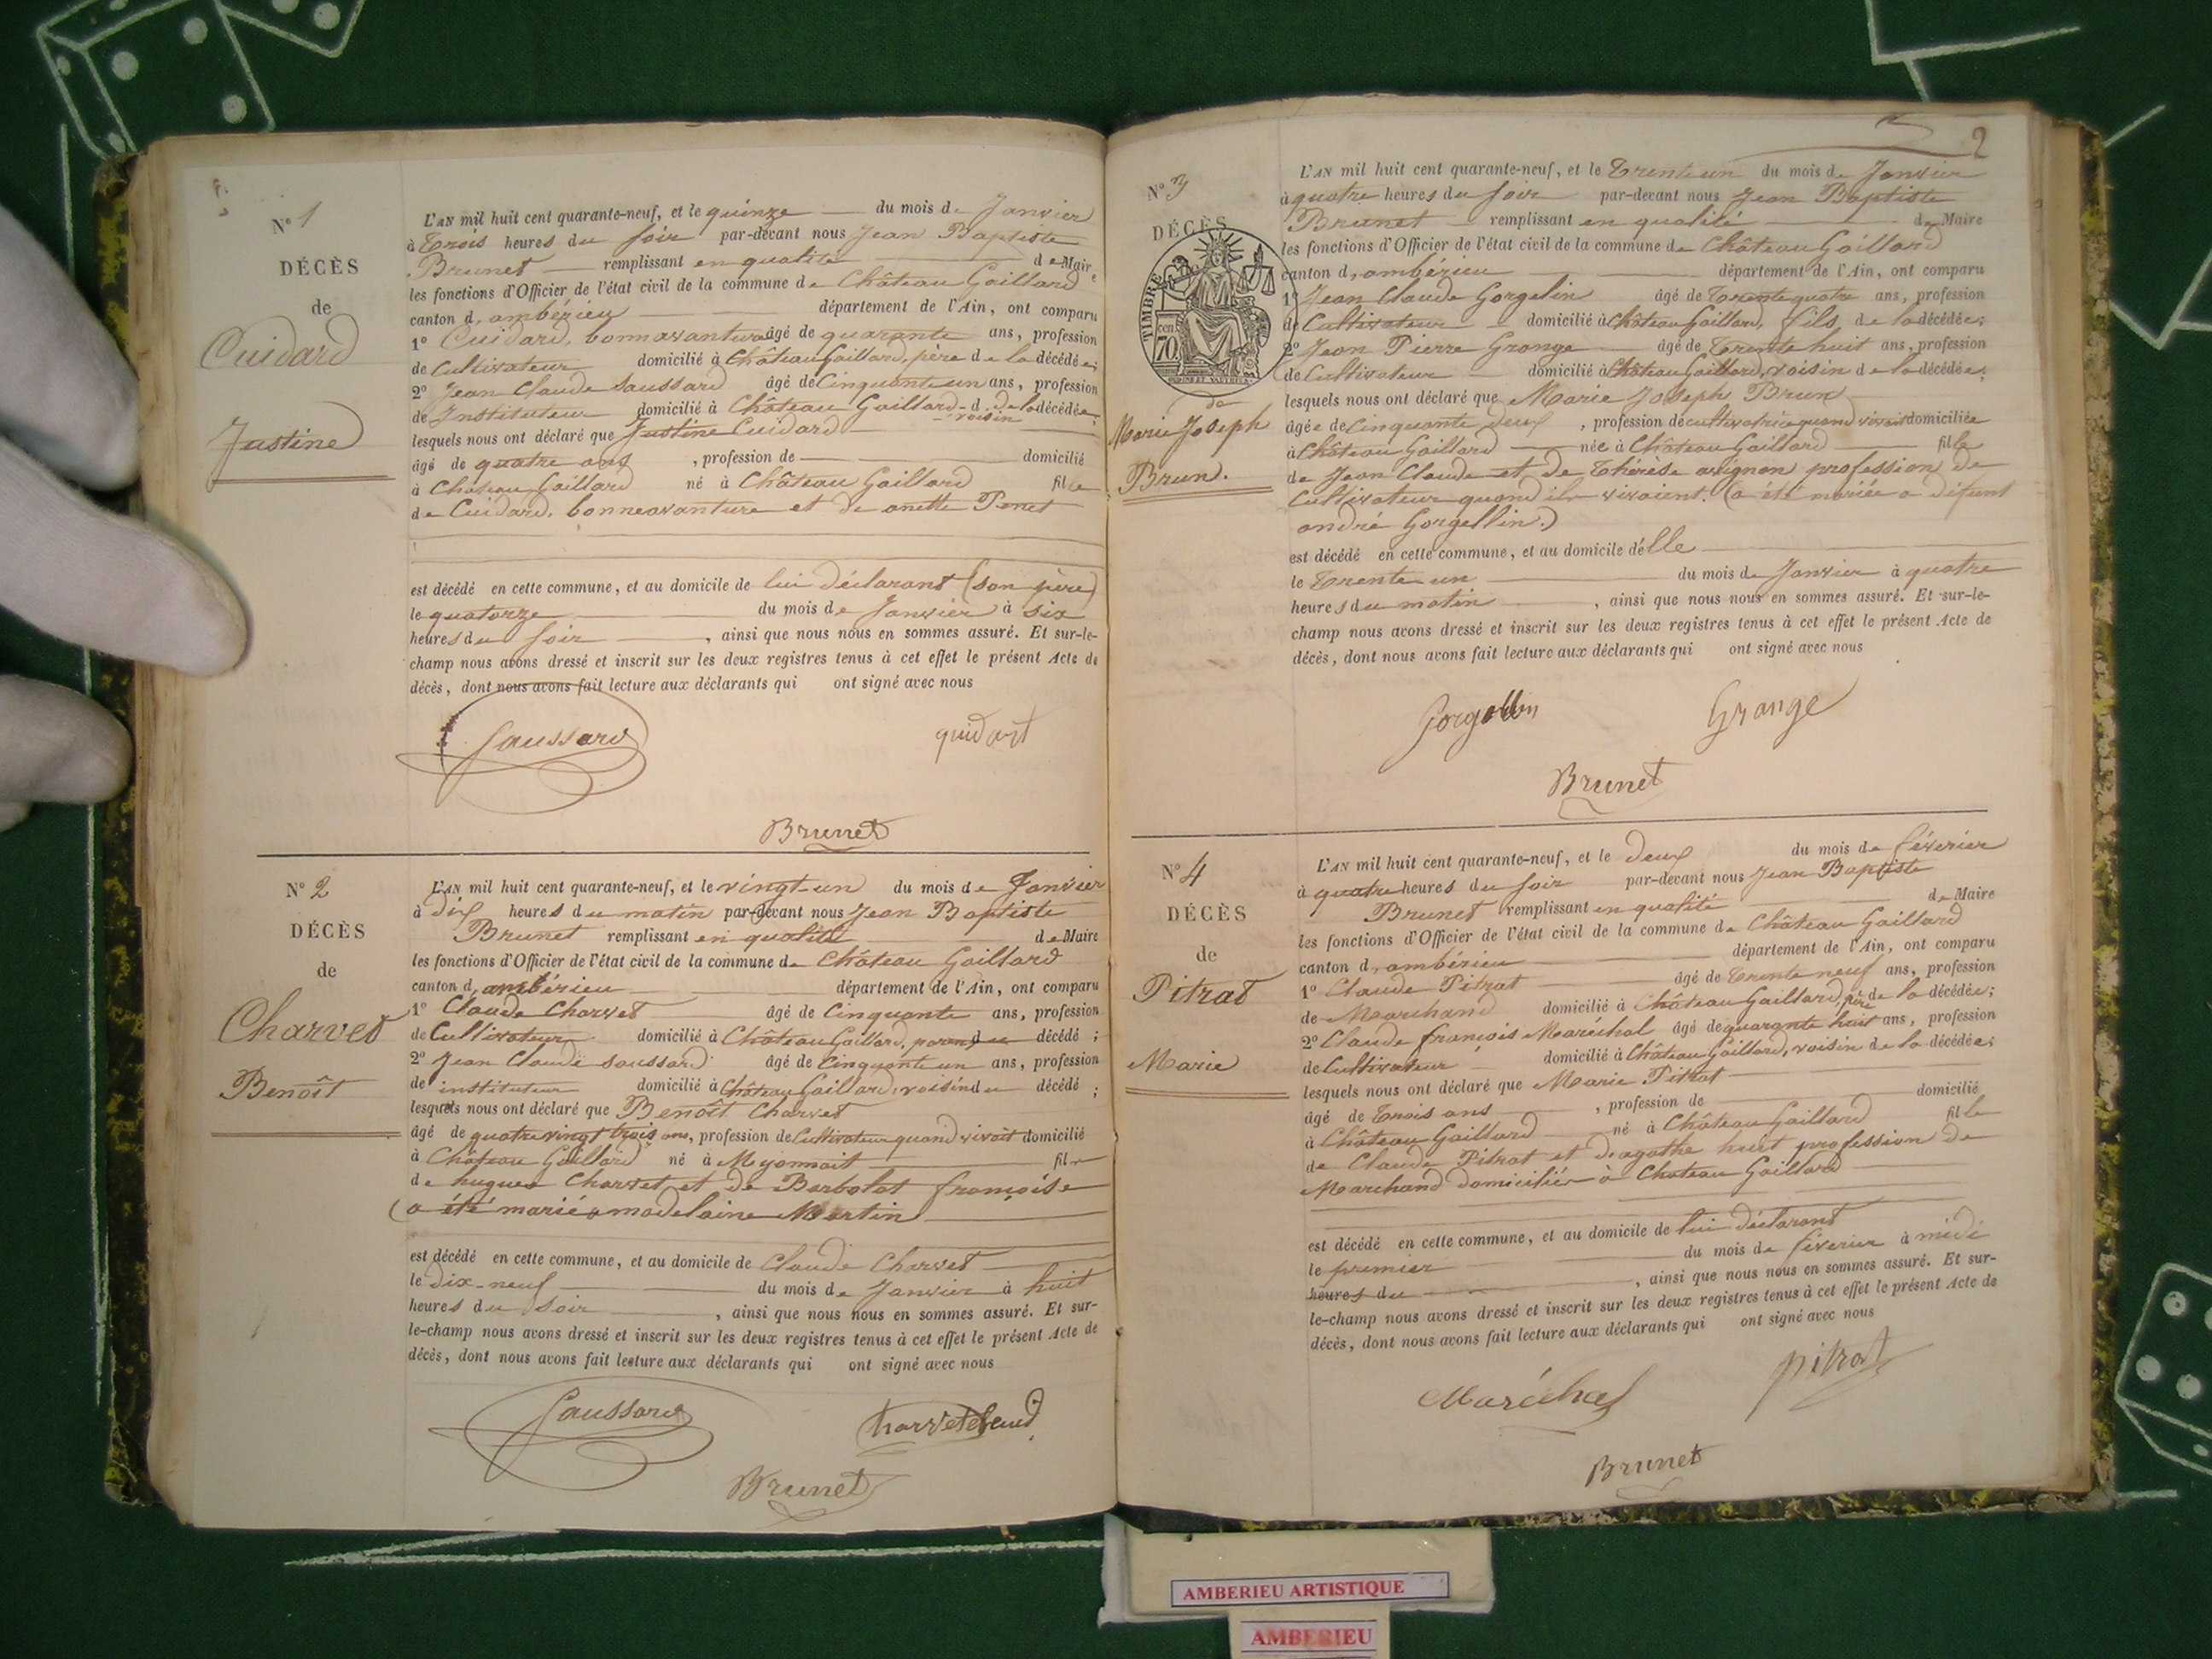 N° 1
DÉCÈS
de
Cuidard
Justine
L'AN mil huit cent quarante-neuf, et le quinze du mois de Janvier
à Trois heures du soir par-devant nous Jean Baptiste
Brunet remplissant en qualité de Maire
les fonctions d'Officier de l'état civil de la commune de Château Gaillard
canton d'ambérieu département de l'Ain, ont comparu
1° Cuidard, bonnavanture âgé de quarante ans, profession
de Cultivateur domicilié à Château Gaillard, père de la décédée;
2° Jean Claude Saussard âgé de Cinquante un ans, profession
de Instituteur domicilié à Château Gaillard voisin de la décédée;
lesquels nous ont déclaré que Justine Cuidard
âgé de quatre ans, profession de domicilié
à Château Gaillard né à Château Gaillard fille
de Cuidard, bonneavanture et de anette Penet
est décédé en cette commune, et au domicile de lui déclarant (son père)
le quatorze du mois de Janvier à six
heures du soir, ainsi que nous nous en sommes assuré. Et sur-le-
champ nous avons dressé et inscrit sur les deux registres tenus à cet effet le présent Acte de
décès, dont nous avons fait lecture aux déclarants qui ont signé avec nous
Saussard
Brunet
N° 2
DÉCÈS
de
Charvet
Benoît
L'AN mil huit cent quarante-neuf, et le vingt-un du mois de Janvier
à dix heures du matin par-devant nous Jean Baptiste
Brunet remplissant en qualité de Maire
les fonctions d'Officier de l'état civil de la commune de Château Gaillard
canton d'ambérieu département de l'Ain, ont comparu
1° Claude Charvet âgé de Cinquante ans, profession
de Cultivateur domicilié à Château Gaillard, parent du décédé;
2° Jean Claude Saussard âgé de Cinquante un ans, profession
de instituteur domicilié à Château Gaillard, voisin du décédé;
lesquels nous ont déclaré que Benoît Charvet
âgé de quatre vingt trois ans, profession de Cultivateur quand vivait domicilié
à Château Gaillard né à Meyonnait fils
de hugues Charvet et de Barbolat françoise
(a été marié a madelaine Martin
est décédé en cette commune, et au domicile de Claude Charvet
le dix-neuf du mois de Janvier à huit
heures du soir, ainsi que nous nous en sommes assuré. Et sur-
le-champ nous avons dressé et inscrit sur les deux registres tenus à cet effet le présent Acte de
décès, dont nous avons fait lecture aux déclarants qui ont signé avec nous
Saussard
Brunet
2
N° 3
DÉCÈS
TIMBRE
70 cen.
de
Marie Joseph
Brun.
L'AN mil huit cent quarante-neuf, et le Trente un du mois de Janvier
à quatre heures du soir par-devant nous Jean Baptiste
Brunet remplissant en qualité de Maire
les fonctions d'Officier de l'état civil de la commune de Château Gaillard
canton d'ambérieu département de l'Ain, ont comparu
1° Jean Claude Gorgelin âgé de Trente quatre ans, profession
de Cultivateur domicilié à Château Gaillard, fils de la décédée;
2° Jean Pierre Grange âgé de Trente huit ans, profession
de Cultivateur domicilié à Château Gaillard, voisin de la décédée;
lesquels nous ont déclaré que Marie Joseph Brun
âgée de Cinquante deux, profession de cultivatrice quand vivait domiciliée
à Château Gaillard née à Château Gaillard fille
de Jean Claude et de Thérèse avignon profession de
Cultivateur quand ils vivaient. (a été mariée a défunt
andré Gorgellin.)
est décédé en cette commune, et au domicile d'elle
le Trente un du mois de Janvier à quatre
heures du matin, ainsi que nous nous en sommes assuré. Et sur-le-
champ nous avons dressé et inscrit sur les deux registres tenus à cet effet le présent Acte de
décès, dont nous avons fait lecture aux déclarants qui ont signé avec nous
Gorgellin Grange
Brunet
N° 4
DÉCÈS
de
Pitrat
Marie
L'AN mil huit cent quarante-neuf, et le deux du mois de féverier
à quatre heures du soir par-devant nous Jean Baptiste
Brunet remplissant en qualité de Maire
les fonctions d'Officier de l'état civil de la commune de Château Gaillard
canton d'ambérieu département de l'Ain, ont comparu
1° Claude Pitrat âgé de Trente neuf ans, profession
de Marchand domicilié à Château Gaillard, père de la décédée;
2° Claude françois Maréchal âgé de quarante huit ans, profession
de Cultivateur domicilié à Château Gaillard, voisin de la décédée;
lesquels nous ont déclaré que Marie Pitrat
âgé de Trois ans, profession de domicilié
à Château Gaillard né à Château Gaillard fille
de Claude Pitrat et d'agathe huit profession de
Marchand domiciliés à Chateau Gaillard
est décédé en cette commune, et au domicile de lui déclarant
le premier du mois de féverier à midi
heures du, ainsi que nous nous en sommes assuré. Et sur-
le-champ nous avons dressé et inscrit sur les deux registres tenus à cet effet le présent Acte de
décès, dont nous avons fait lecture aux déclarants qui ont signé avec nous
Maréchal pitrat
Brunet
AMBERIEU ARTISTIQUE
AMBERIEU